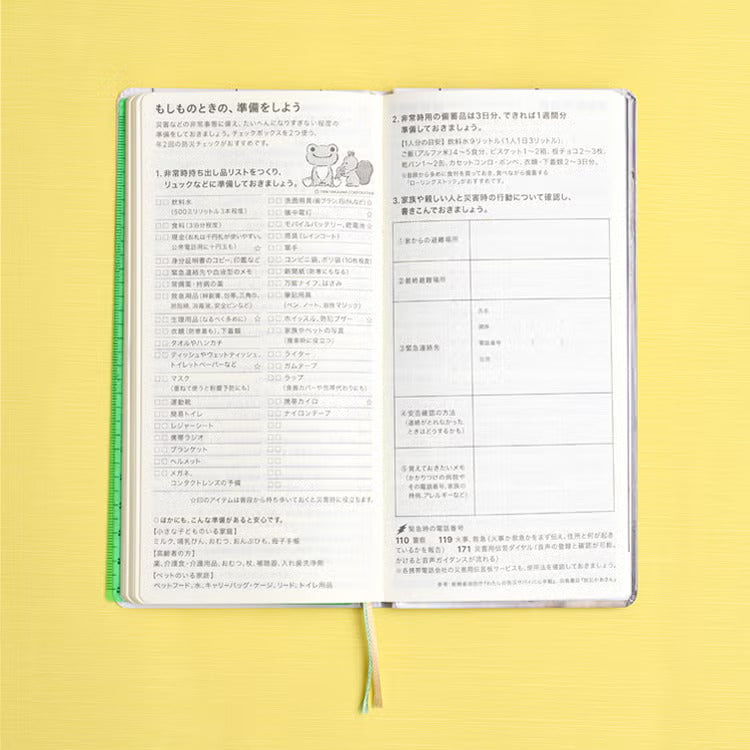 もしものときの、準備をしよう
災害などの非常事態に備え、たいへんになりすぎない程度の
準備をしておきましょう。チェックボックスを2つ使う、
年2回の防災チェックがおすすめです。
1. 非常時持ち出し品リストをつくり、
リュックなどに準備しておきましょう。
飲料水
(500ミリリットル3本程度)
食料(3日分程度)
現金(お札は千円札が使いやすい。
公衆電話用に十円玉も) ☆
身分証明書のコピー、印鑑など
緊急連絡先や血液型のメモ
常備薬・持病の薬
救急用品(絆創膏、包帯、三角巾、
消毒液、安全ピンなど)
生理用品(なるべく多めに) ☆
衣類(防寒着も)、下着類
タオルやハンカチ
ティッシュやウェットティッシュ、
トイレットペーパーなど ☆
マスク
(重ねて使うと粉塵予防にも)
運動靴
簡易トイレ
レジャーシート
携帯ラジオ
ブランケット
ヘルメット
メガネ、
コンタクトレンズの予備
洗面用具(歯ブラシ、石けんなど) ☆
懐中電灯 ☆
モバイルバッテリー、乾電池 ☆
雨具(レインコート)
軍手
コンビニ袋、ポリ袋(10枚程度)
新聞紙(防寒にもなる)
万能ナイフ、はさみ
筆記用具
(ペン、ノート、油性マジック)
ホイッスル、防犯ブザー ☆
家族やペットの写真
(捜索時に役立つ)
ライター
ガムテープ
ラップ
(食器カバーや包帯代わりにも)
携帯カイロ ☆
ナイロンテープ
☆印のアイテムは普段から持ち歩いておくと災害時に役立ちます。
ほかにも、こんな準備があると安心です。
【小さな子どものいる家庭】
ミルク、哺乳びん、おむつ、おんぶひも、母子手帳
【高齢者の方】
薬、介護食・介護用品、おむつ、杖、補聴器、入れ歯洗浄剤
【ペットのいる家庭】
ペットフード、水、キャリーバッグ・ケージ、リード、トイレ用品
2. 非常時用の備蓄品は3日分、できれば1週間分
準備しておきましょう。
【1人分の目安】飲料水9リットル(1人1日3リットル)、
ご飯(アルファ米)4〜5食分、ビスケット1〜2箱、板チョコ2〜3枚、
乾パン1〜2缶、カセットコンロ・ボンベ、衣類・下着類2〜3日分。
※普段から多めに食材を買っておき、食べながら備蓄する
「ローリングストック」がおすすめです。
3. 家族や親しい人と災害時の行動について確認し、
書きこんでおきましょう。
①家からの避難場所
②最終避難場所
③緊急連絡先
氏名
電話番号
住所
④安否確認の方法
(連絡がとれなかった
ときはどうするかも)
⑤覚えておきたいメモ
(かかりつけの病院や
その電話番号、家族の
持病、アレルギーなど)
緊急時の電話番号
110 警察 119 火事、救急(火事か救急かをまず伝え、住所と何が起き
ているかを報告) 171 災害用伝言ダイヤル(音声の登録と確認が可能。
かけると音声ガイダンスが流れる)
※各携帯電話会社の災害用伝言板サービスも、使用法を確認しておきましょう。